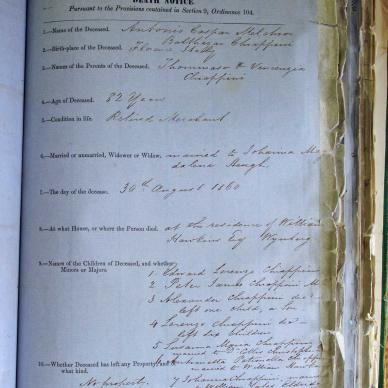 DEATH NOTICE
Pursuant to the Provisions contained in Section 9, Ordinance 104.
1.—Name of the Deceased. Antonio Caspar Melchior
Balthazar Chiappini
2.—Birth-place of the Deceased. Italy
3.—Names of the Parents of the Deceased. Thommaso &
Chiappini
4.—Age of Deceased. 82 Years
5.—Condition in life. Retired Merchant
6.—Married or unmarried, Widower or Widow, married to Johanna Mag
dalena
7.—The day of the decease. 30th August 1860
8.—At what House, or where the Person died. at the residence of William
Hawkins Esq Wynberg
9.—Names of the Children of Deceased, and whether
Minors or Majors.
1 Edward Lorenzo Chiappini
2 Peter James Chiappini M
3 Alexander Chiappini dec
left one child, a son
4 Lorenzo Chiappini dec
left six children
5 Susanna Maria Chiappini
married to Dr
6 Chiappini
married to William Hawkins
10.—Whether Deceased has left any Property, and of
what kind.
No property.
7 Johanna Chiappini married